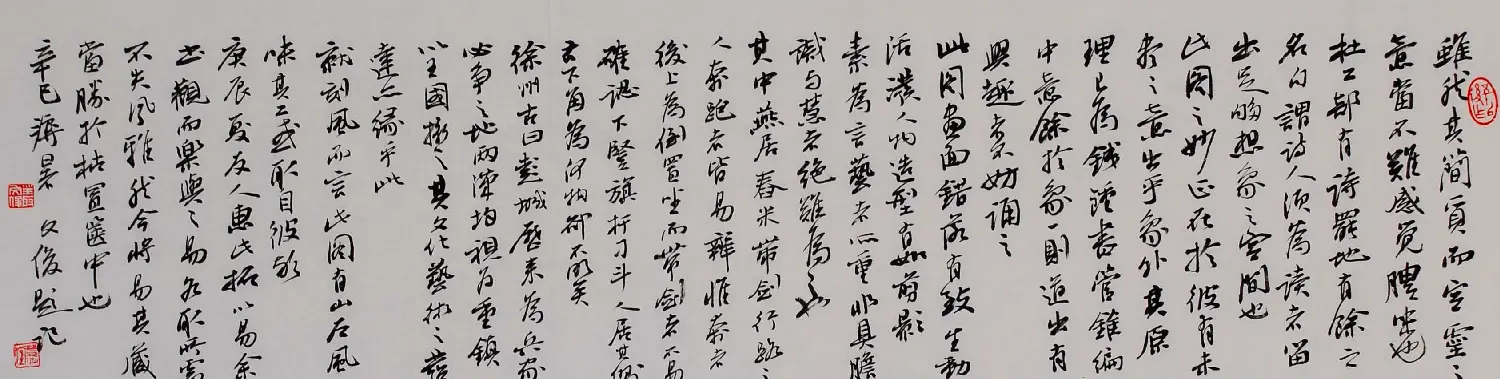 雖然其簡質而空靈之
意當不難感覺體味也
杜工部有詩罷地有餘之
名句謂詩人須為讀者留
出足夠想象之空間也
此圖之妙正在於彼有未
盡之意出乎象外其原
理已為錢鍾書管錐編
中意餘於象一則道出有
興趣者不妨誦之
此圖畫面錯落有致生動
活潑人物造型有如剪影
素為言藝者所重非具膽
識與慧者絕難為之也
其中燕居舂米帶劍行路之
人奔跑者皆易辨惟奔者
後上為倒置坐而帶劍者不易
確認下豎旗杆刁斗人居其側
右下角為何物卻不明矣
徐州古曰彭城歷來為兵家
必爭之地兩漢均視為重鎮
以王國擬之其文化藝術之發
達亦緣乎此
就刻風而言此圖有山左風
味其工或取自彼歟
庚辰夏友人惠此拓以易余
書觀而樂與之易各取所需
不失風雅然今將易其藏
當勝於枯置齒中也
辛巳 文俊題記